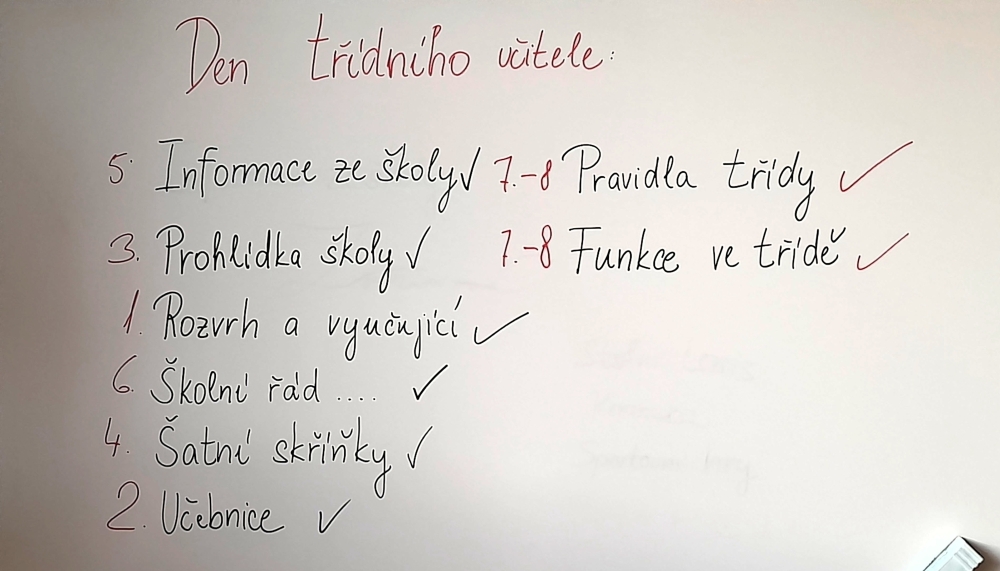 Den třídního učitele:
5. Informace ze školy ✓
3. Prohlídka školy ✓
1. Rozvrh a vyučující ✓
6. Školní řád .... ✓
4. Šatní skříňky ✓
2. Učebnice ✓
7.-8 Pravidla třídy ✓
7.-8 Funkce ve třídě ✓